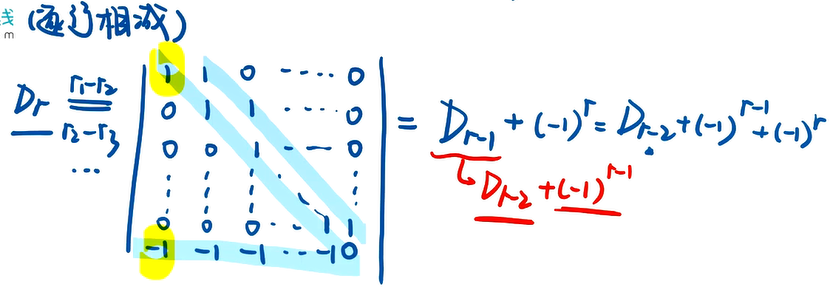 线
m
(逐行相减)
Dr r₁-r₂ r₂-r₃ ...
| 1 1 0 ---- 0 |
| 0 1 1 ---- 0 |
| 0 0 1 -- 0 |
| ⋮ ⋮ ⋮ ⋱ ⋮ |
| 0 0 0 --- 1 1 |
| -1 -1 -1 --- -1 0 |
= D_{r-1} + (-1)^r = D_{r-2} + (-1)^{r-1} + (-1)^r
↳ D_{r-2} + (-1)^{r-1}